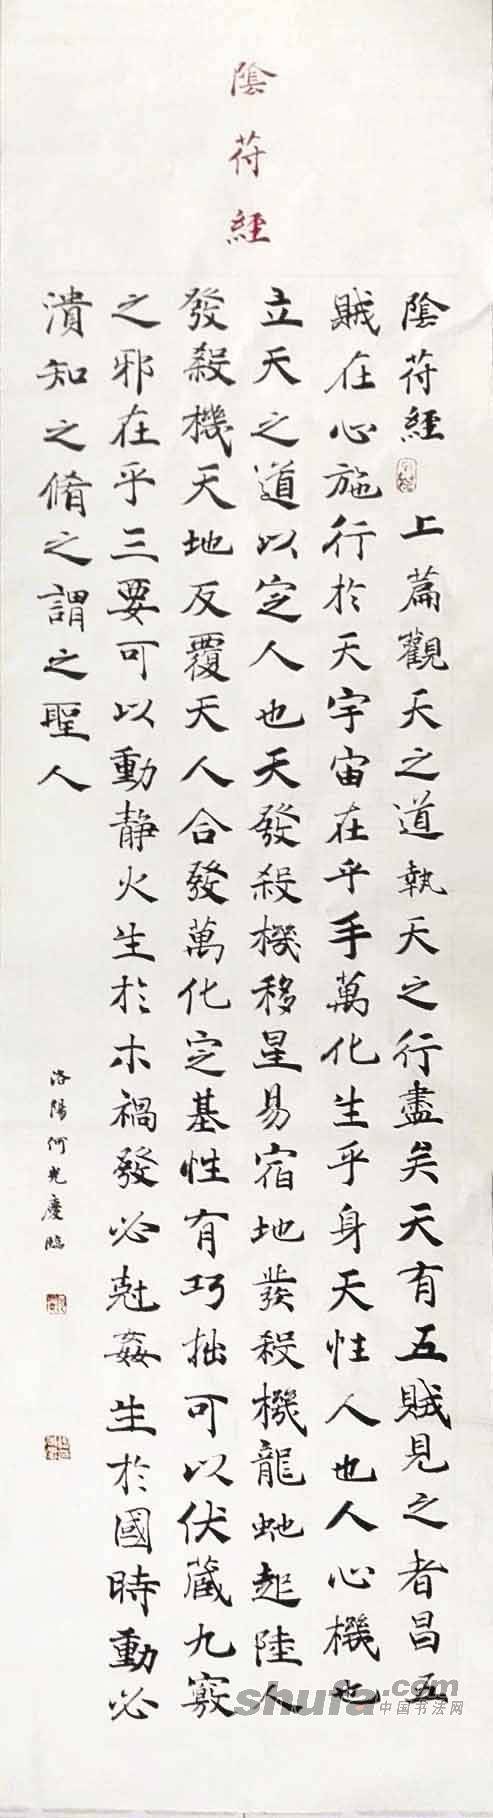 陰符經
陰符經上篇觀天之道執天之行盡矣天有五賊見之者昌五
賊在心施行於天宇宙在乎手萬化生乎身天性人也人心機也
立天之道以定人也天發殺機移星易宿地發殺機龍虵起陸人
發殺機天地反覆天人合發萬化定基性有巧拙可以伏藏九竅
之邪在乎三要可以動靜火生於木禍發必尅姦生於國時動必
潰知之脩之謂之聖人
洛陽何光慶臨
shufa.com
中国书法网